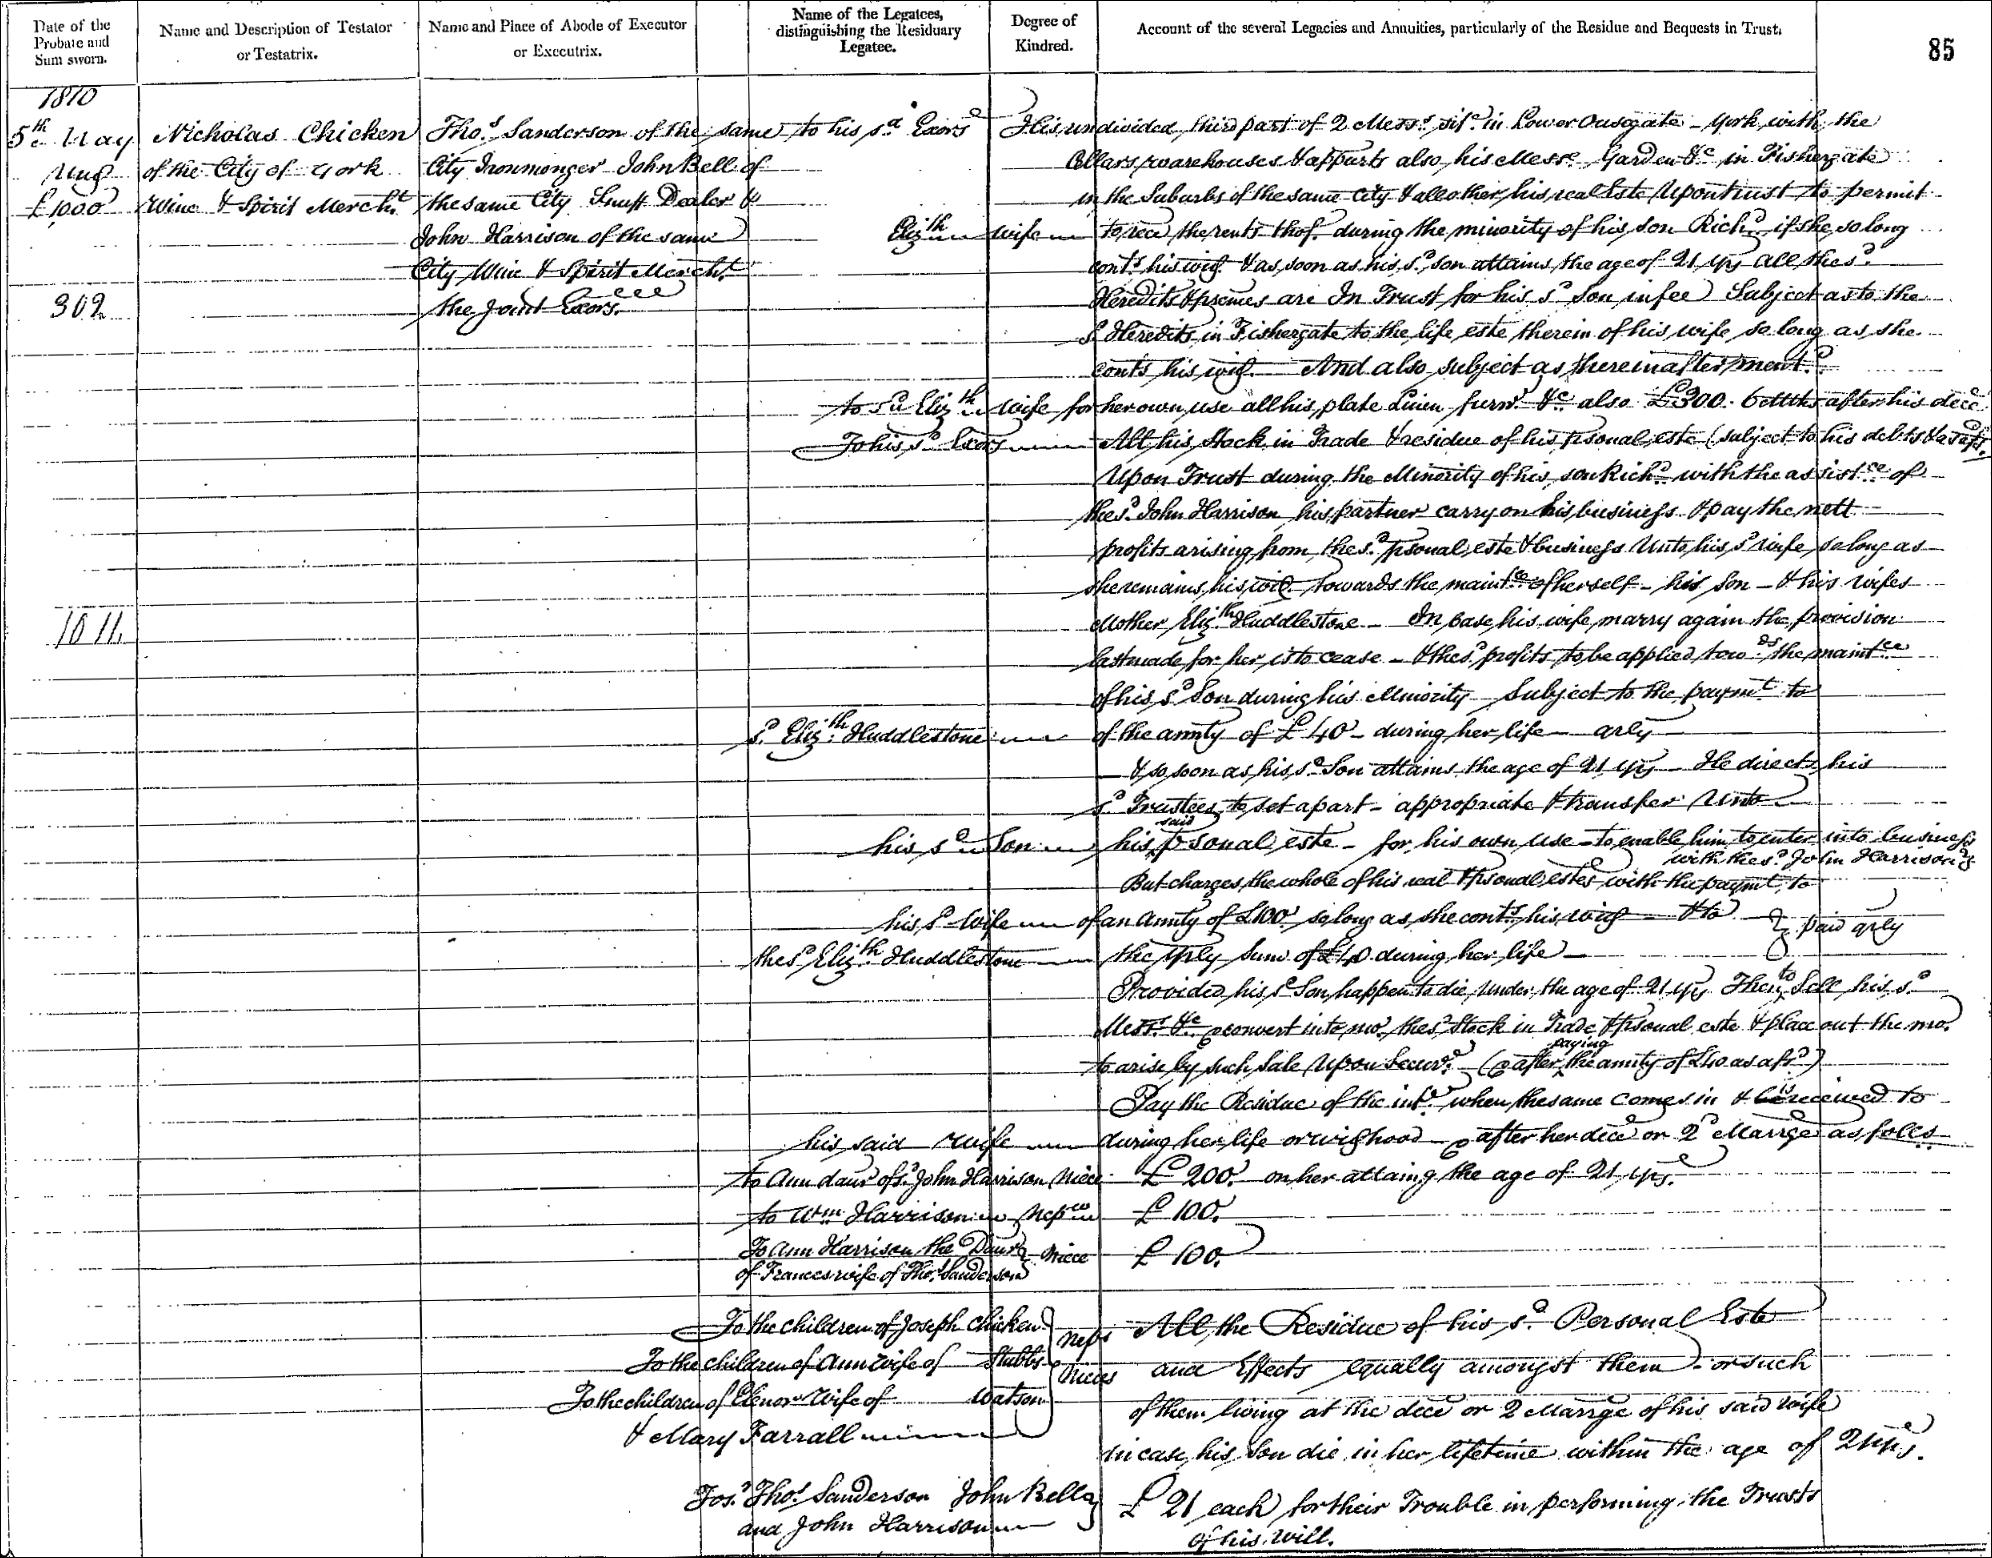 Date of the Probate and Sum sworn.
Name and Description of Testator or Testatrix.
Name and Place of Abode of Executor or Executrix.
Name of the Legatees, distinguishing the Residuary Legatee.
Degree of Kindred.
Account of the several Legacies and Annuities, particularly of the Residue and Bequests in Trust.
85
1810
5th May
Und
£1000
302
1011
Nicholas Chicken
of the City of York
Wine & Spirit Mercht
Thos. Sanderson of the same
City Ironmonger John Bell of
the same City Snuff Dealer &
John Harrison of the same
City Wine & Spirit Mercht
the Joint Exors.
to his sd Exors His undivided third part of 2 Messs. site in Lower Ousegate - York with the
Cellars warehouses & appurts also his Messe Garden &c in Fishergate
in the Suburbs of the same City & all other his real Este Upon trust to permit
Elizth wife to rece the rents thof. during the minority of his son Richd if she so long
conts his wid. & as soon as his sd son attains the age of 21 yrs all the sd
Heredits & premes are In Trust for his sd Son in fee Subject as to the
sd Heredits in Fishergate to the life este therein of his wife so long as she
conts his wid. And also subject as thereinafter mentd
to sd Elizth wife for her own use all his plate Linen furnr. &c also £300. 6 Mths after his dece
To his sd Exors All his Stock in Trade & residue of his psonal este (subject to his debts & as afsd.
Upon Trust during the Minority of his son Richd with the assistce of
the sd John Harrison his partner carry on his business & pay the nett
profits arising from the sd psonal este & business Unto his sd wife so long as
she remains his wid. towards the maintce of herself - his son - & his wifes
Mother Elizth Huddlestone - In case his wife marry again the provision
last made for her is to cease - & the sd profits to be applied towds the maintce
of his sd Son during his Minority Subject to the paymt to
sd Elizth Huddlestone of the annty of £40 - during her life - qrly
& so soon as his sd Son attains the age of 21 yrs - He directs his
sd Trustees to set apart - appropriate & transfer Unto
his sd Son his said psonal este - for his own use - to enable him to enter into business
with the sd John Harrison
But charges the whole of his real & psonal estes with the paymt to
his sd Wife of an Annty of £100 so long as she conts his wid - & to
the sd Elizth Huddlestone the Yrly Sum of £40 during her life - paid qrly
Provided his sd Son happen to die under the age of 21 yrs Then to Sell his sd
Messs. &c convert into mo. the sd Stock in Trade & psonal este & place out the mo.
to arise by such Sale Upon Secury. (& after paying the annty of £40 as afsd)
Pay the Residue of the intt when the same comes in & is received to
his said wife during her life or widhood - & after her dece or 2d Marrge as folls
to Ann daur of sd John Harrison Niece £200. on her attaing the age of 21 yrs.
to Wm Harrison Nepw £100.
To Ann Harrison the Daur
of Frances wife of Thos. Sanderson Niece £100.
To the children of Joseph Chicken
To the children of Ann Wife of Stubbs
To the children of Elenor Wife of Watson
& Mary Farrall
Neps
Nieces
All the Residue of his sd Personal Este
and Effects equally amongst them - or such
of them living at the dece or 2 Marrge of his said wife
in case his Son die in her lifetime within the age of 21 yrs.
To sd Thos. Sanderson John Bell
and John Harrison
£21 each for their Trouble in performing the Trusts
of his Will.